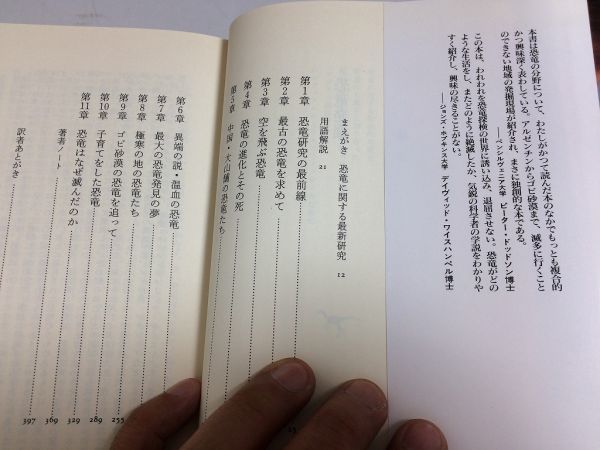 本書は恐竜の分野について、わたしがかつて読んだ本のなかでもっとも複合的
かつ興味深く表わしている。アルゼンチンからゴビ砂漠まで、滅多に行くこと
のできない地域の発掘現場が紹介され、まさに独創的な本である。
──ペンシルヴェニア大学 ピーター・ドッドソン博士
この本は、われわれを恐竜探検の世界に誘い込み、退屈させない。恐竜がどの
ような生活をし、またどのように絶滅したか、気鋭の科学者の学説をわかりや
すく紹介し、興味の尽きることがない。
──ジョンズ・ホプキンス大学 デイヴィッド・ワイスハンペル博士
まえがき 恐竜に関する最新研究 12
用語解説 21
第1章 恐竜研究の最前線
第2章 最古の恐竜を求めて
第3章 空を飛ぶ恐竜
第4章 恐竜の進化とその死
第5章 中国・大山鋪の恐竜たち
第6章 異端の説・温血の恐竜
第7章 最大の恐竜発見の夢
第8章 極寒の地の恐竜たち
第9章 ゴビ砂漠の恐竜を追って 255
第10章 子育てをした恐竜 289
第11章 恐竜はなぜ滅んだのか 329
著者ノート 369
訳者あとがき 397